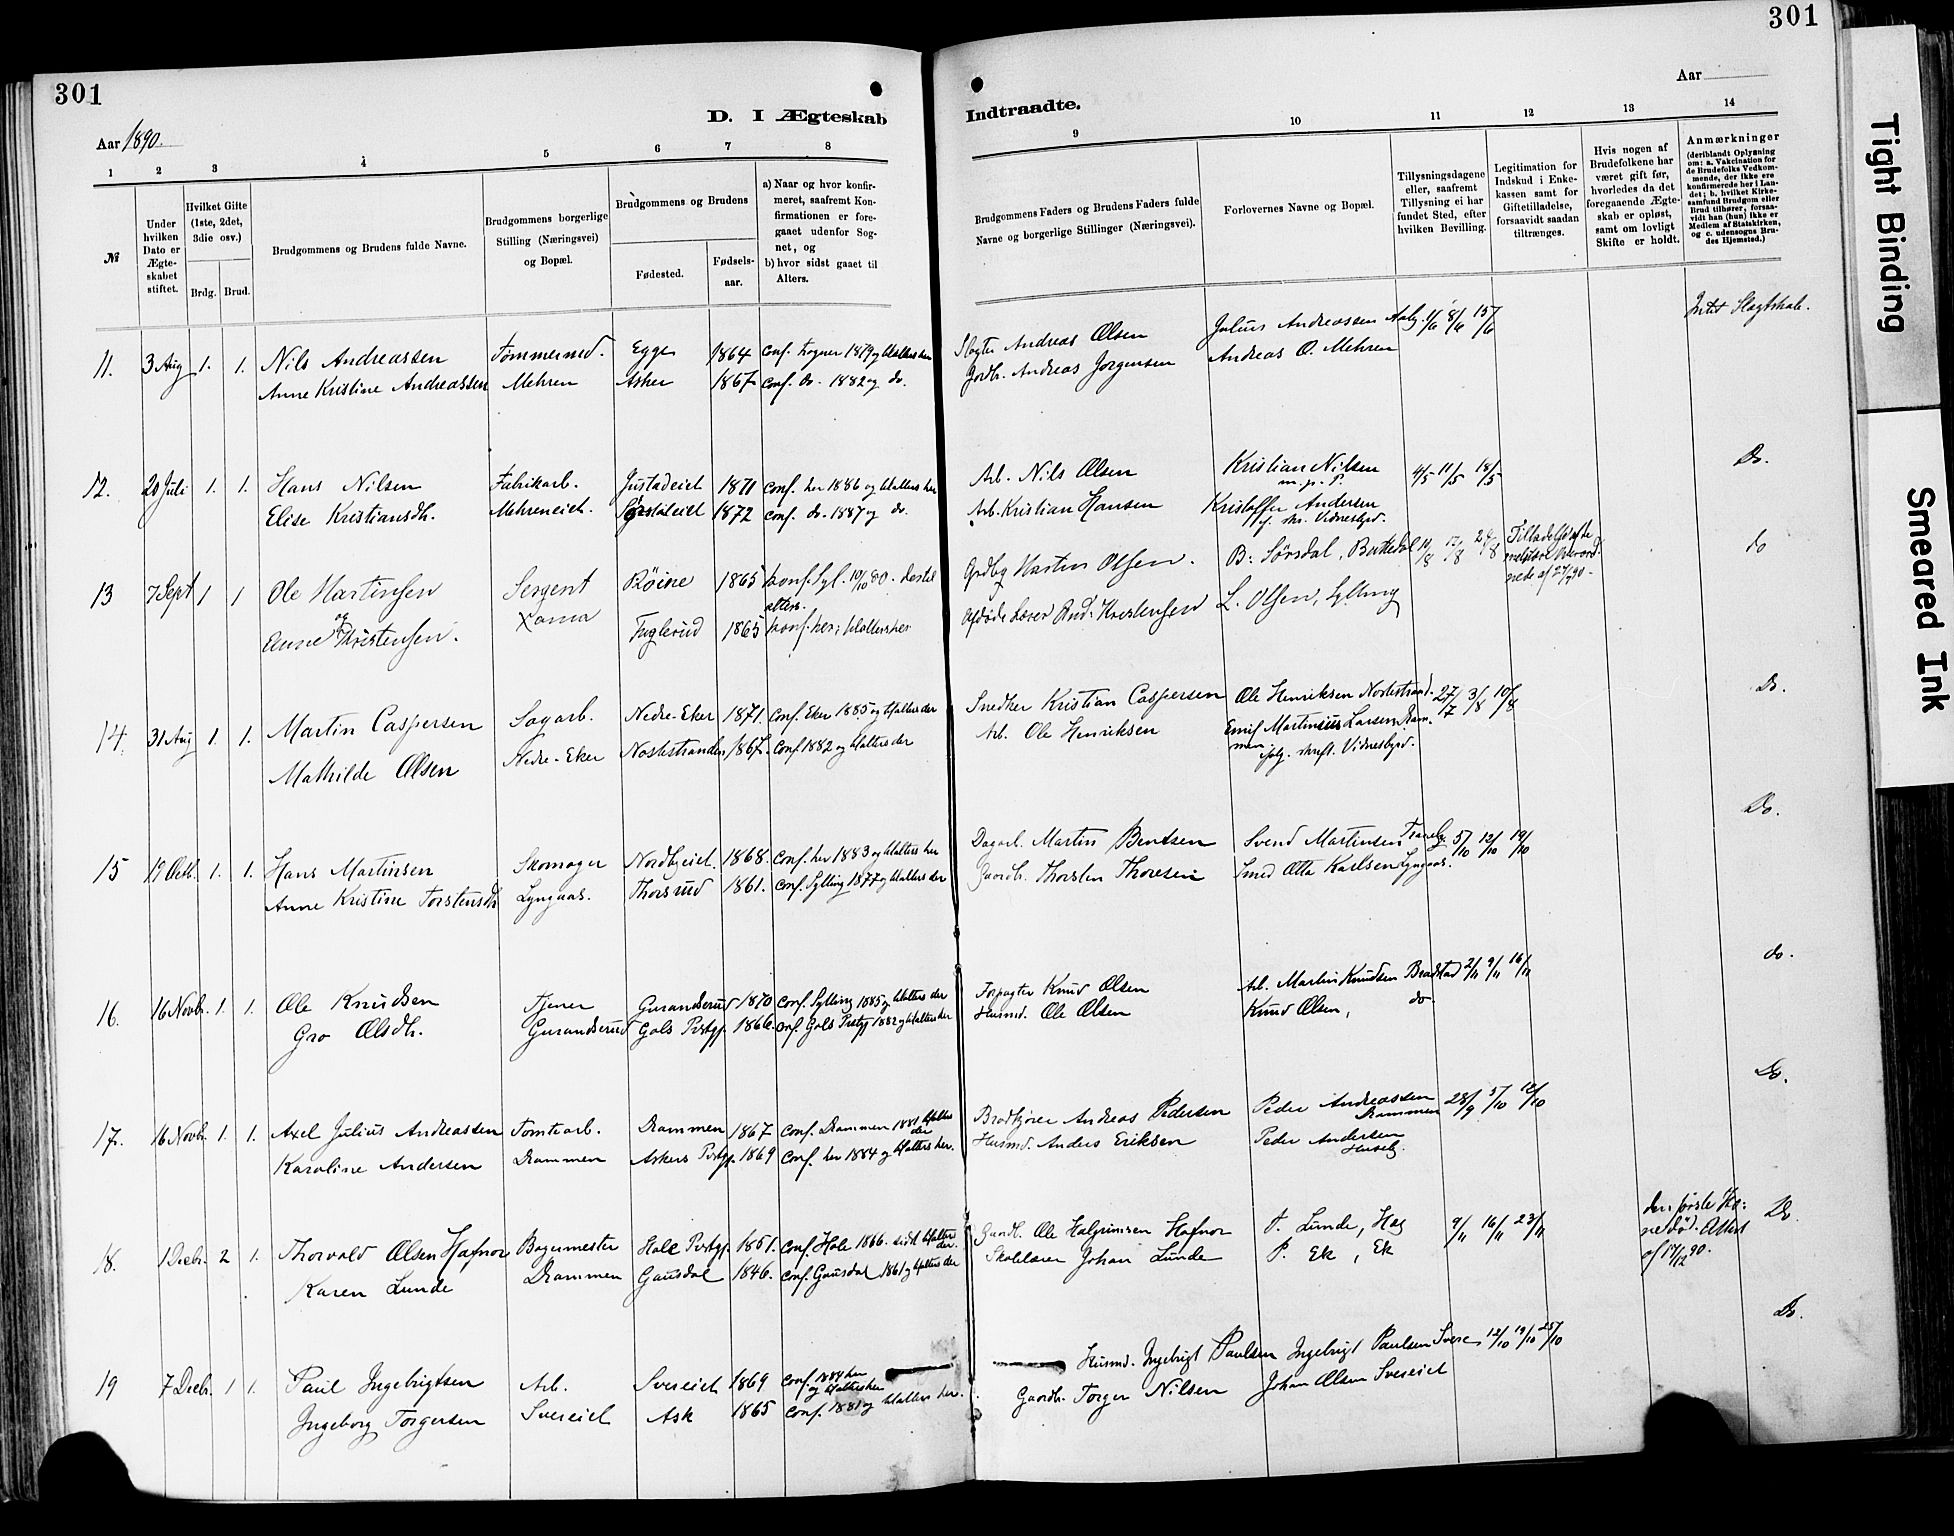 301
301
Aar 1890.
D. I Ægteskab
Indtraadte.
Aar
1 2 3 4 5 6 7 8
9 10 11 12 13 14
№
Under
hvilken
Dato er
Ægte-
skabet
stiftet.
Hvilket Gifte
(1ste, 2det,
3die osv.)
Brdg. Brud.
Brudgommens og Brudens fulde Navne.
Brudgommens borgerlige
Stilling (Næringsvei)
og Bopæl.
Brudgommens og Brudens
Fødested.
Fødsels-
aar.
a) Naar og hvor konfir-
meret, saafremt Kon-
firmationen er fore-
gaaet udenfor Sog-
net, og
b) hvor sidst gaaet til
Alters.
Brudgommens Faders og Brudens Faders fulde
Navne og borgerlige Stillinger (Næringsvei).
Forlovernes Navne og Bopæl.
Tillysningsdagene
eller, saafremt
Tillysning ei har
fundet Sted, efter
hvilken Bevilling.
Legitimation for
Indskud i Enke-
kassen samt for
Giftetilladelse,
forsaavidt saadan
tiltrænges.
Hvis nogen af
Brudefolkene har
været gift før,
hvorledes da det
foregaaende Ægte-
skab er opløst,
samt om lovligt
Skifte er holdt.
Anmærkninger
(deriblandt Oplysning
om: a. Vakcination for
de Brudefolks Vedkom-
mende, der ikke ere
konfirmerede her i Lan-
det; b. hvilket Kirke-
samfund Brudgom eller
Brud tilhører, forsaa-
vidt han (hun) ikke er
Medlem af Statskirken,
og c. udensogns Bru-
des Hjemsted.)
11. 3 Aug 1. 1. Nils Andreassen Tømmermd. Egge 1864 Conf. Logner 1879 og t. Alters her Slagter Andreas Olsen Julius Andreassen 1/6 8/6 15/6 Intet Slægtskab.
Anne Kristine Andreassen Mehren Asker 1867 Conf. do. 1882 og do. Gbr. Andreas Jørgensen Andreas O. Mehren
12. 20 Juli 1. 1. Hans Nilsen Fabrikarb. Justadeiet 1871 Conf. her 1886 og t. Alters her Arb. Nils Olsen Kristian Nilsen 4/5 11/5 18/5 Do.
m. p. P.
Elise Kristiansdtr. Mehreneiet. 1872 Conf. do. 1887 og do. Arb. Kristian Hansen Kristoffer Andersen
Vidnesbyrd.
13 7 Sept 1 1 Ole Martinsen Sergent Røine 1865 Konf. Syl. 10/10 80. Gbr. Martin Olsen. B. Sørsdal, 24/8 do
og
Anne Kristensen. Fuglerud 1865 Konf. her; Kristensen L. Olsen, Sylling
14. 31 Aug 1. 1. Martin Caspersen Sagarb. Nedre-Eker 1871. Conf. Eker 1885 og t. Alters der Snedker Kristian Caspersen Ole Henriksen Nostestrand. 27/7 3/8 10/8 Do.
Mathilde Olsen Nedre-Eker Nostestranden 1867. Conf 1882 og t. Alters der Arb. Ole Henriksen Emil Martinius Larsen Dram-
men iflg. skrft. Vidnesbyrd.
15 19 Octb. 1. 1. Hans Martinsen Skomager Nordbyeiet. 1868. Conf. her 1883 og t. Alters her Dagarb. Martin Bentsen Svend Martinsen 5/10 12/10 19/10 Do.
Anne Kristine Torstensdtr. Lyngaas. Thorsrud 1861. Conf. Sylling 1877 og t. Alters der Gaardbr. Thorsten Thoresen Smed Otto Karlsen Lyngaas.
16. 16 Novbr. 1. 1. Ole Knudsen Tjener Gurandsrud 1870 Conf. Sylling 1885 og t. Alters der Forpagter Knud Olsen Arb. Martin Knudsen Bradstad 2/11 9/11 16/11 do.
Gro Olsdtr. Gurandsrud Gols Prstgj. 1866. Conf. Gols Prstgj 1882 og t. Alters her Husmd. Ole Olsen Knud Olsen, do.
17. 16 Novbr 1. 1. Axel Julius Andreassen Tomtearb. Drammen 1867 Conf. Drammen 1881 t. Alters der Brødkjører Andreas Pedersen Peder Andreassen Drammen 28/9 5/10 12/10 Do.
Karoline Andersen Drammen Askers Prstgj. 1869 Conf. her 1884 og t. Alters her. Husmd. Anders Eriksen Peder Andersen
18. 1 Decbr. 2 1. Thorvald Olsen Hafnor Bagermester Hole Prstgj. 1851. Conf. Hole 1866. sidst t. Alters der. Gaardb. Ole Halgrimsen Hafnor P. Lunde, Hag 9/11 16/11 23/11 den første Ko-
ne død. Attest
af 17/12 90. Do.
Karen Lunde Drammen Gausdal 1846. Conf. Gausdal 1861 og t. Alters der Skolelærer Johan Lunde P. Ek, Ek
19 7 Decbr. 1 1. Paul Ingebrigtsen Arb. Svereiet 1869 Conf. 1884 her og t. Alters her Husmd. Ingebrigt Paulsen Ingebrigt Paulsen Svere 12/10 19/10 25/10 Do.
Ingeborg Torgersen Svereiet Ask 1865 Conf. 1881 og t. Alters her. Gaardbr. Torger Nilsen Johan Olsen Svereiet
Tight Binding
Smeared Ink